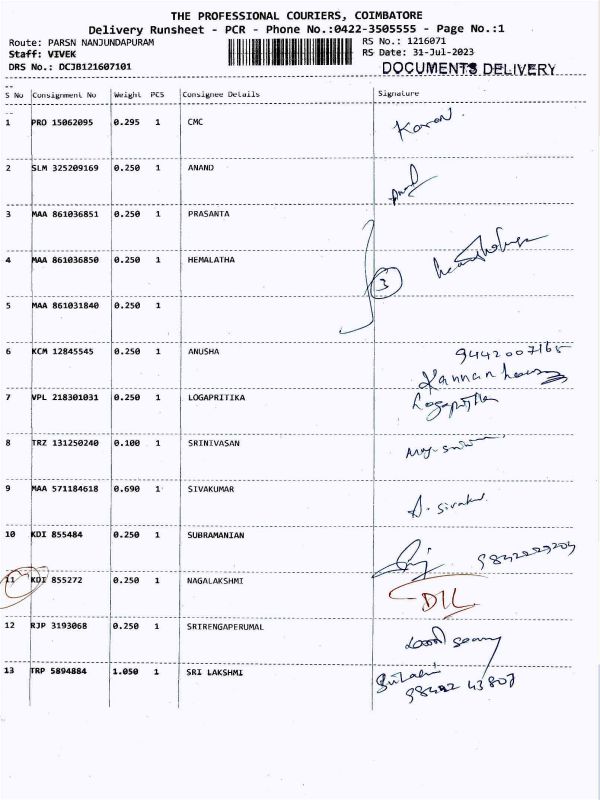 THE PROFESSIONAL COURIERS, COIMBATORE
Delivery Runsheet - PCR - Phone No.:0422-3505555 - Page No.:1
Route: PARSN NANJUNDAPURAM RS No.: 1216071
Staff: VIVEK RS Date: 31-Jul-2023
DRS No.: DCJB121607101 DOCUMENTS DELIVERY
S No Consignment No Weight PCS Consignee Details Signature
1 PRO 15062095 0.295 1 CMC Karan
2 SLM 325209169 0.250 1 ANAND Anand
3 MAA 861036851 0.250 1 PRASANTA
4 MAA 861036850 0.250 1 HEMALATHA 3
5 MAA 861031840 0.250 1
6 KCM 12845545 0.250 1 ANUSHA 9442007165
Kannan
7 VPL 218301031 0.250 1 LOGAPRITIKA
8 TRZ 131250240 0.100 1 SRINIVASAN
9 MAA 571184618 0.690 1 SIVAKUMAR
10 KDI 855484 0.250 1 SUBRAMANIAN
11 KDI 855272 0.250 1 NAGALAKSHMI D/L
12 RJP 3193068 0.250 1 SRIRENGAPERUMAL
13 TRP 5894884 1.050 1 SRI LAKSHMI